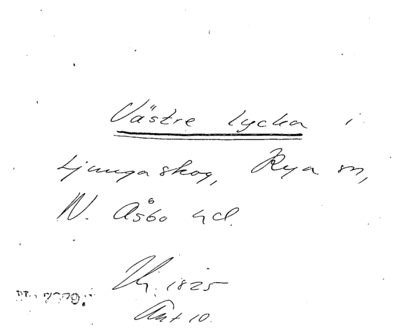 Västre lycka i
Ljungaskog, Rya sn,
N. Åsbo hd.
1825
Ant 10.